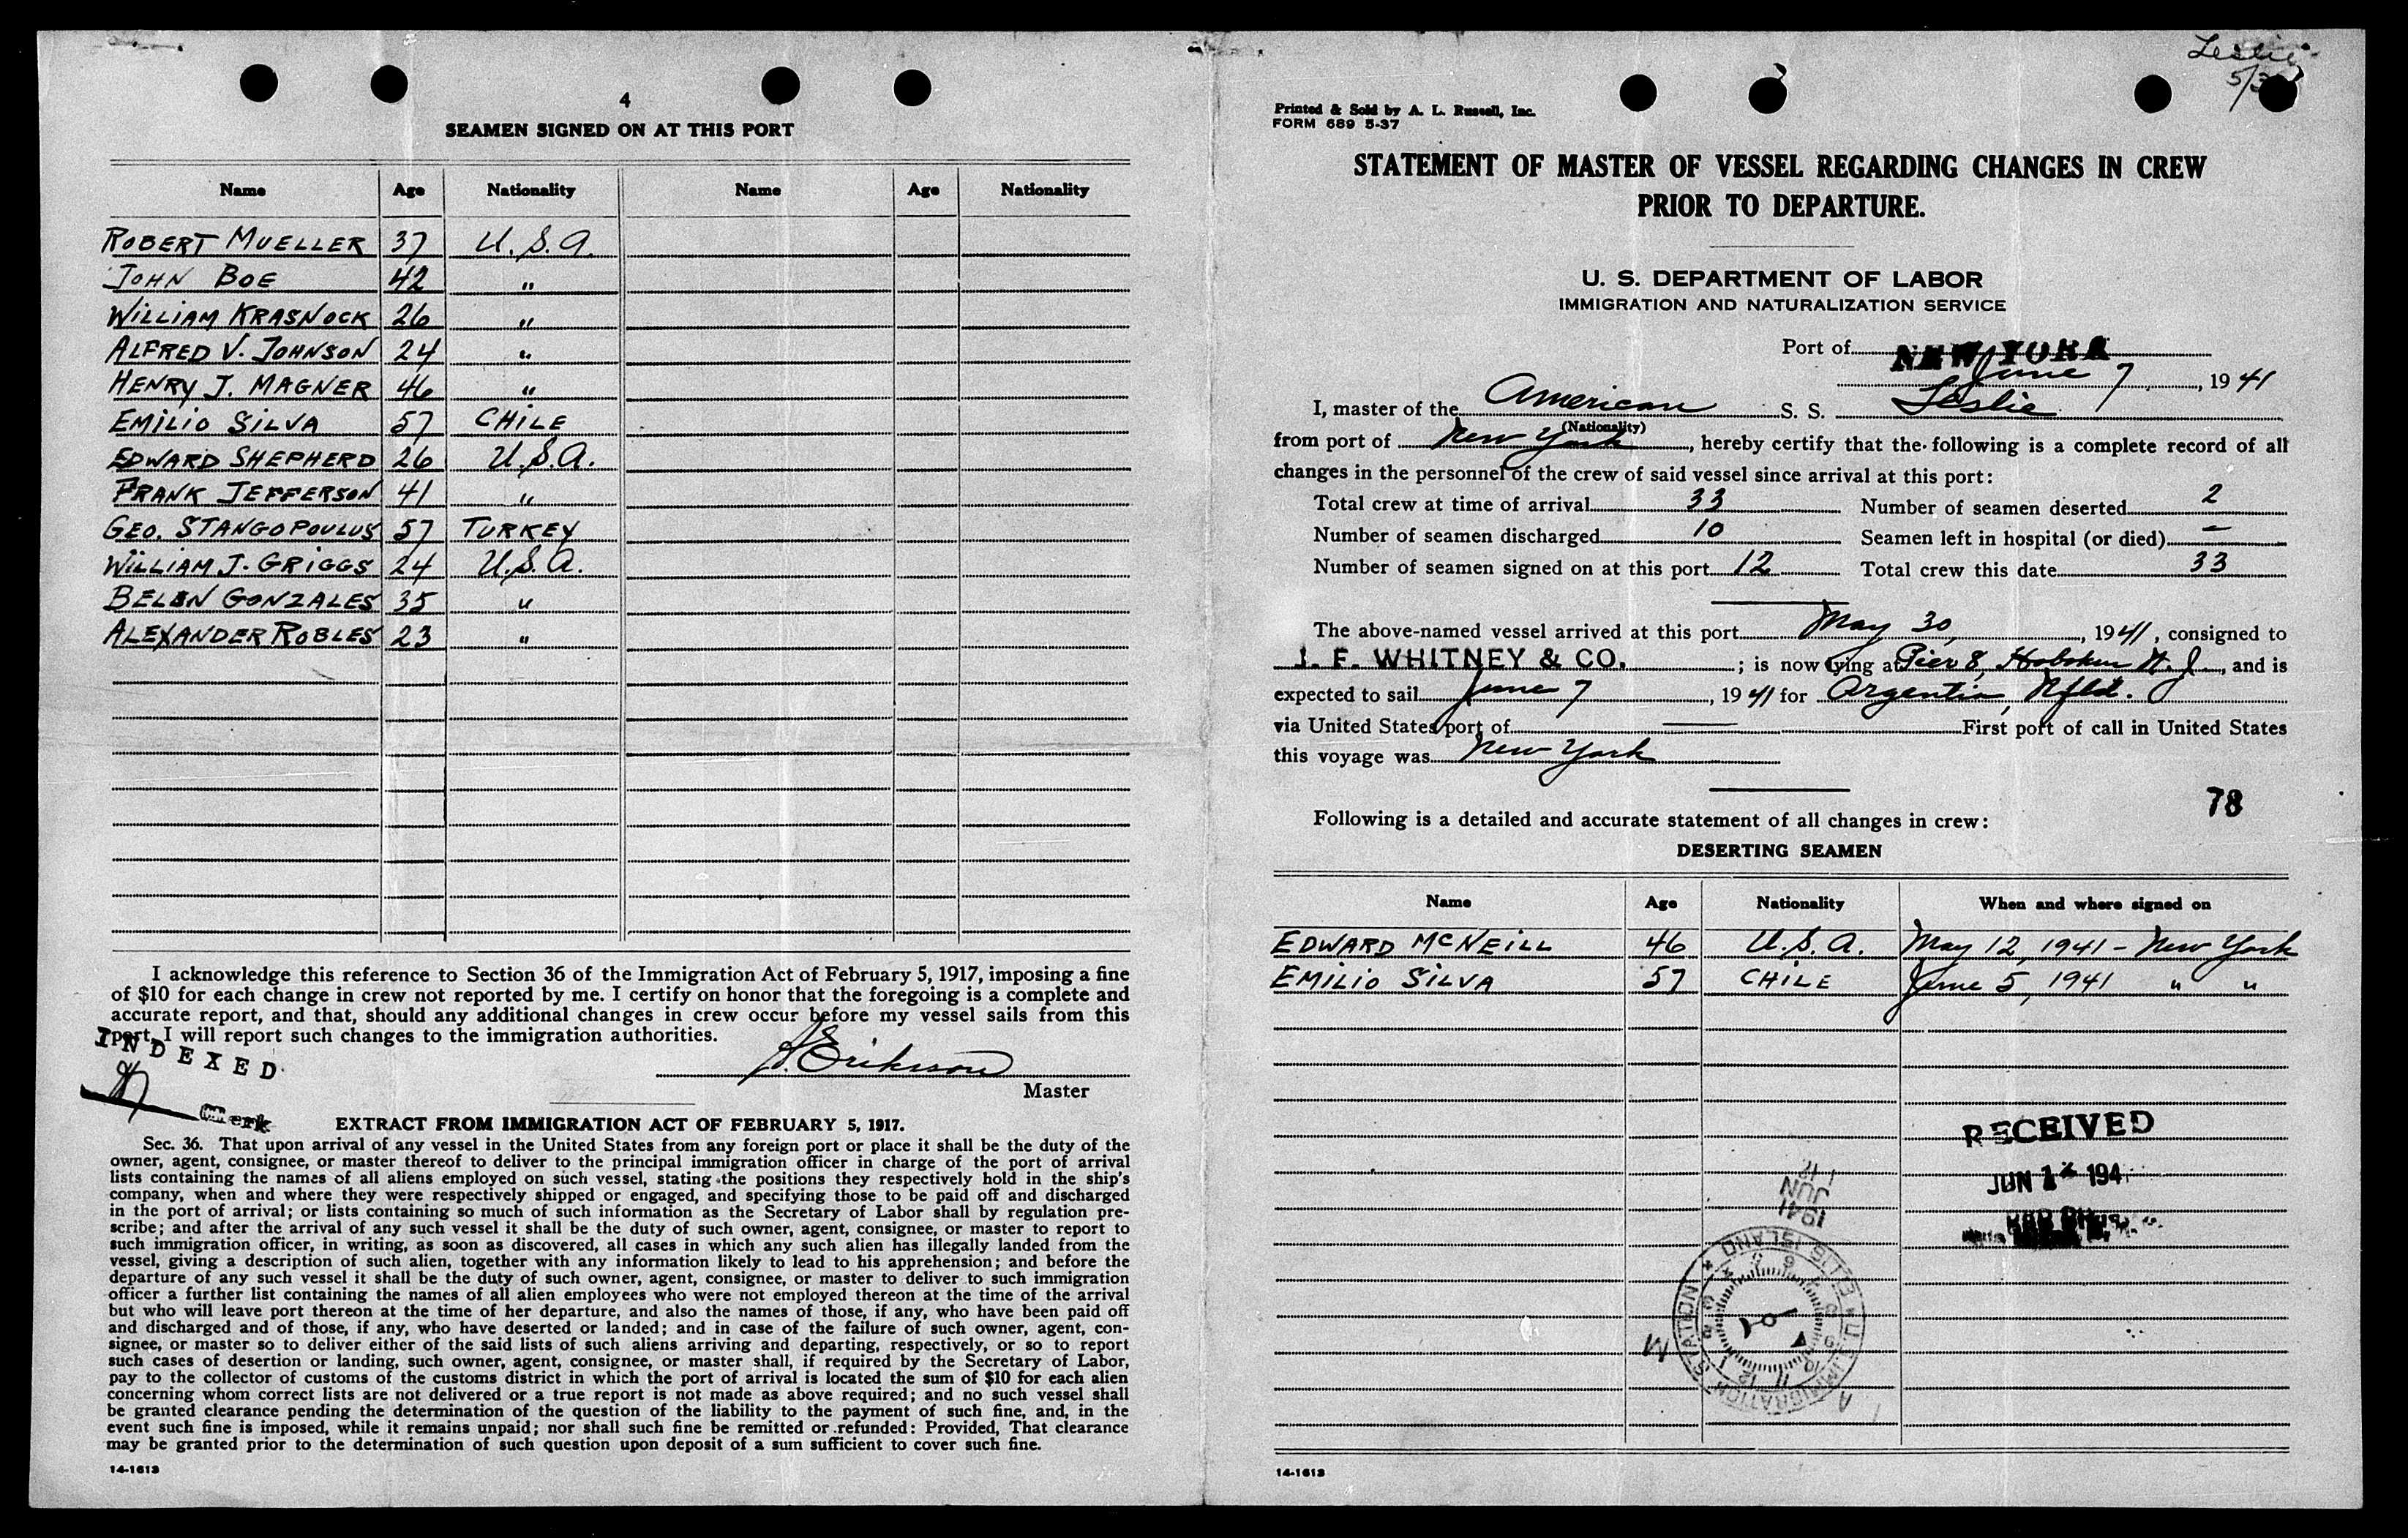 4
SEAMEN SIGNED ON AT THIS PORT
Name Age Nationality Name Age Nationality
ROBERT MUELLER 37 U.S.A.
JOHN BOE 42 "
WILLIAM KRASNOCK 26 "
ALFRED V. JOHNSON 24 "
HENRY J. MAGNER 46 "
EMILIO SILVA 57 CHILE
EDWARD SHEPHERD 26 U.S.A.
FRANK JEFFERSON 41 "
GEO. STANGOPOULUS 57 TURKEY
WILLIAM J. GRIGGS 24 U.S.A.
BELEN GONZALES 35 "
ALEXANDER ROBLES 23 "
I acknowledge this reference to Section 36 of the Immigration Act of February 5, 1917, imposing a fine
of $10 for each change in crew not reported by me. I certify on honor that the foregoing is a complete and
accurate report, and that, should any additional changes in crew occur before my vessel sails from this
port, I will report such changes to the immigration authorities.
INDEXED
Erikson
Master
Clerk
EXTRACT FROM IMMIGRATION ACT OF FEBRUARY 5, 1917.
Sec. 36. That upon arrival of any vessel in the United States from any foreign port or place it shall be the duty of the
owner, agent, consignee, or master thereof to deliver to the principal immigration officer in charge of the port of arrival
lists containing the names of all aliens employed on such vessel, stating the positions they respectively hold in the ship's
company, when and where they were respectively shipped or engaged, and specifying those to be paid off and discharged
in the port of arrival; or lists containing so much of such information as the Secretary of Labor shall by regulation pre-
scribe; and after the arrival of any such vessel it shall be the duty of such owner, agent, consignee, or master to report to
such immigration officer, in writing, as soon as discovered, all cases in which any such alien has illegally landed from the
vessel, giving a description of such alien, together with any information likely to lead to his apprehension; and before the
departure of any such vessel it shall be the duty of such owner, agent, consignee, or master to deliver to such immigration
officer a further list containing the names of all alien employees who were not employed thereon at the time of the arrival
but who will leave port thereon at the time of her departure, and also the names of those, if any, who have been paid off
and discharged and of those, if any, who have deserted or landed; and in case of the failure of such owner, agent, con-
signee, or master so to deliver either of the said lists of such aliens arriving and departing, respectively, or so to report
such cases of desertion or landing, such owner, agent, consignee, or master shall, if required by the Secretary of Labor,
pay to the collector of customs of the customs district in which the port of arrival is located the sum of $10 for each alien
concerning whom correct lists are not delivered or a true report is not made as above required; and no such vessel shall
be granted clearance pending the determination of the question of the liability to the payment of such fine, and, in the
event such fine is imposed, while it remains unpaid; nor shall such fine be remitted or refunded: Provided, That clearance
may be granted prior to the determination of such question upon deposit of a sum sufficient to cover such fine.
14-1613
Leslie
5/3
Printed & Sold by A. L. Russell, Inc.
FORM 689 5-37
STATEMENT OF MASTER OF VESSEL REGARDING CHANGES IN CREW
PRIOR TO DEPARTURE.
U. S. DEPARTMENT OF LABOR
IMMIGRATION AND NATURALIZATION SERVICE
Port of NEW YORK
June 7, 1941
I, master of the American S. S. Leslie
(Nationality)
from port of New York, hereby certify that the following is a complete record of all
changes in the personnel of the crew of said vessel since arrival at this port:
Total crew at time of arrival 33 Number of seamen deserted 2
Number of seamen discharged 10 Seamen left in hospital (or died) —
Number of seamen signed on at this port 12 Total crew this date 33
The above-named vessel arrived at this port May 30, 1941, consigned to
J. F. WHITNEY & CO.; is now lying at Pier 8, Hoboken N. J., and is
expected to sail June 7, 1941 for Argentia, Nfld.
via United States port of — First port of call in United States
this voyage was New York
78
Following is a detailed and accurate statement of all changes in crew:
DESERTING SEAMEN
Name Age Nationality When and where signed on
EDWARD MCNEILL 46 U.S.A. May 12, 1941 - New York
EMILIO SILVA 57 CHILE June 5, 1941 " "
RECEIVED
JUN 194
1941
JUN
12
ELLIS ISLAND * U.S. IMMIGRATION STATION *
M
14-1613